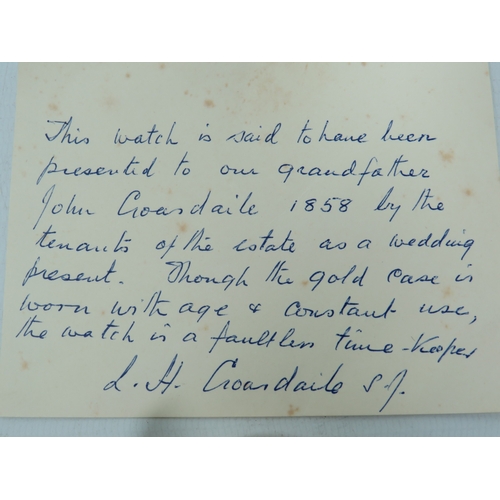 This watch is said to have been
presented to our grandfather
John Croasdaile 1858 by the
tenants of the estate as a wedding
present. Though the gold case is
worn with age & constant use,
the watch is a faultless time-keeper
L. H. Croasdaile S.J.